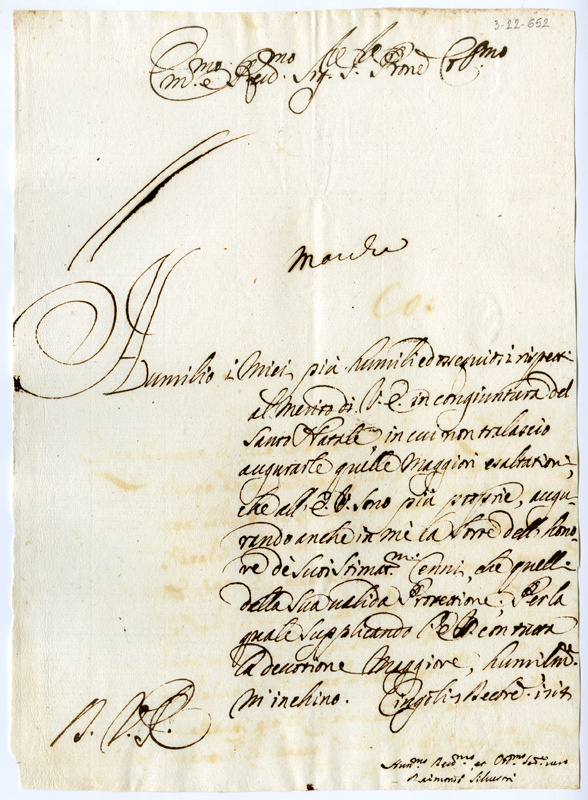 3-22-652
Em.mo e Reud.mo Sig.re Sig.re Prone Col.mo
Marche
Aumilio i Miei più humili ed osseguiosi rispetti
al Merito di V. E. in congiuntura del
Santo Natale, in cui non tralascio
augurarle quelle Maggiori esaltationi,
che all' E. V. sono più proprie, augu-
rando anche in mè la Sorte dell' hono-
re dè suoi stimat.mi Cenni, che quella
della sua valida Protettione; Per la
quale supplicando l' E. V. con tutta
la devotione Maggiore, humilm.te
m' inchino. Cingoli
D. V. E.
Hum.mo Reud.mo et Obl.mo
Raimondo Silvestri